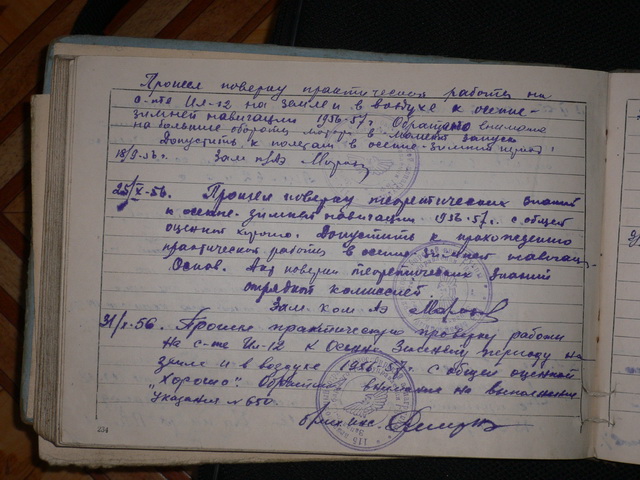 Прошел поверку практической работы на
с-те Ил-12 на земле и в воздухе к осенне-
зимней навигации 1956-57 г. Обращено внимание
на большие обороты мотора в момент запуска
Допустить к полетам в осенне-зимний период.
18/9-56 г. Зам к АЭ
25/X-56. Прошел поверку теоретических знаний
к осенне-зимней навигации 1956-57 г. с общей
оценкой хорошо. Допустить к прохождению
практической работы в осенне-зимней навигац.
Основ. Акт поверки теоретических знаний
отрядной комиссией
Зам. ком АЭ
31/X-56. Прошел практическую проверку работы
на с-те Ил-12 к Осенне Зимнему периоду на
земле и в воздухе 1956-57 г с общей оценкой
"Хорошо". Обратить внимание на выполнение
указания № 650.
234
115